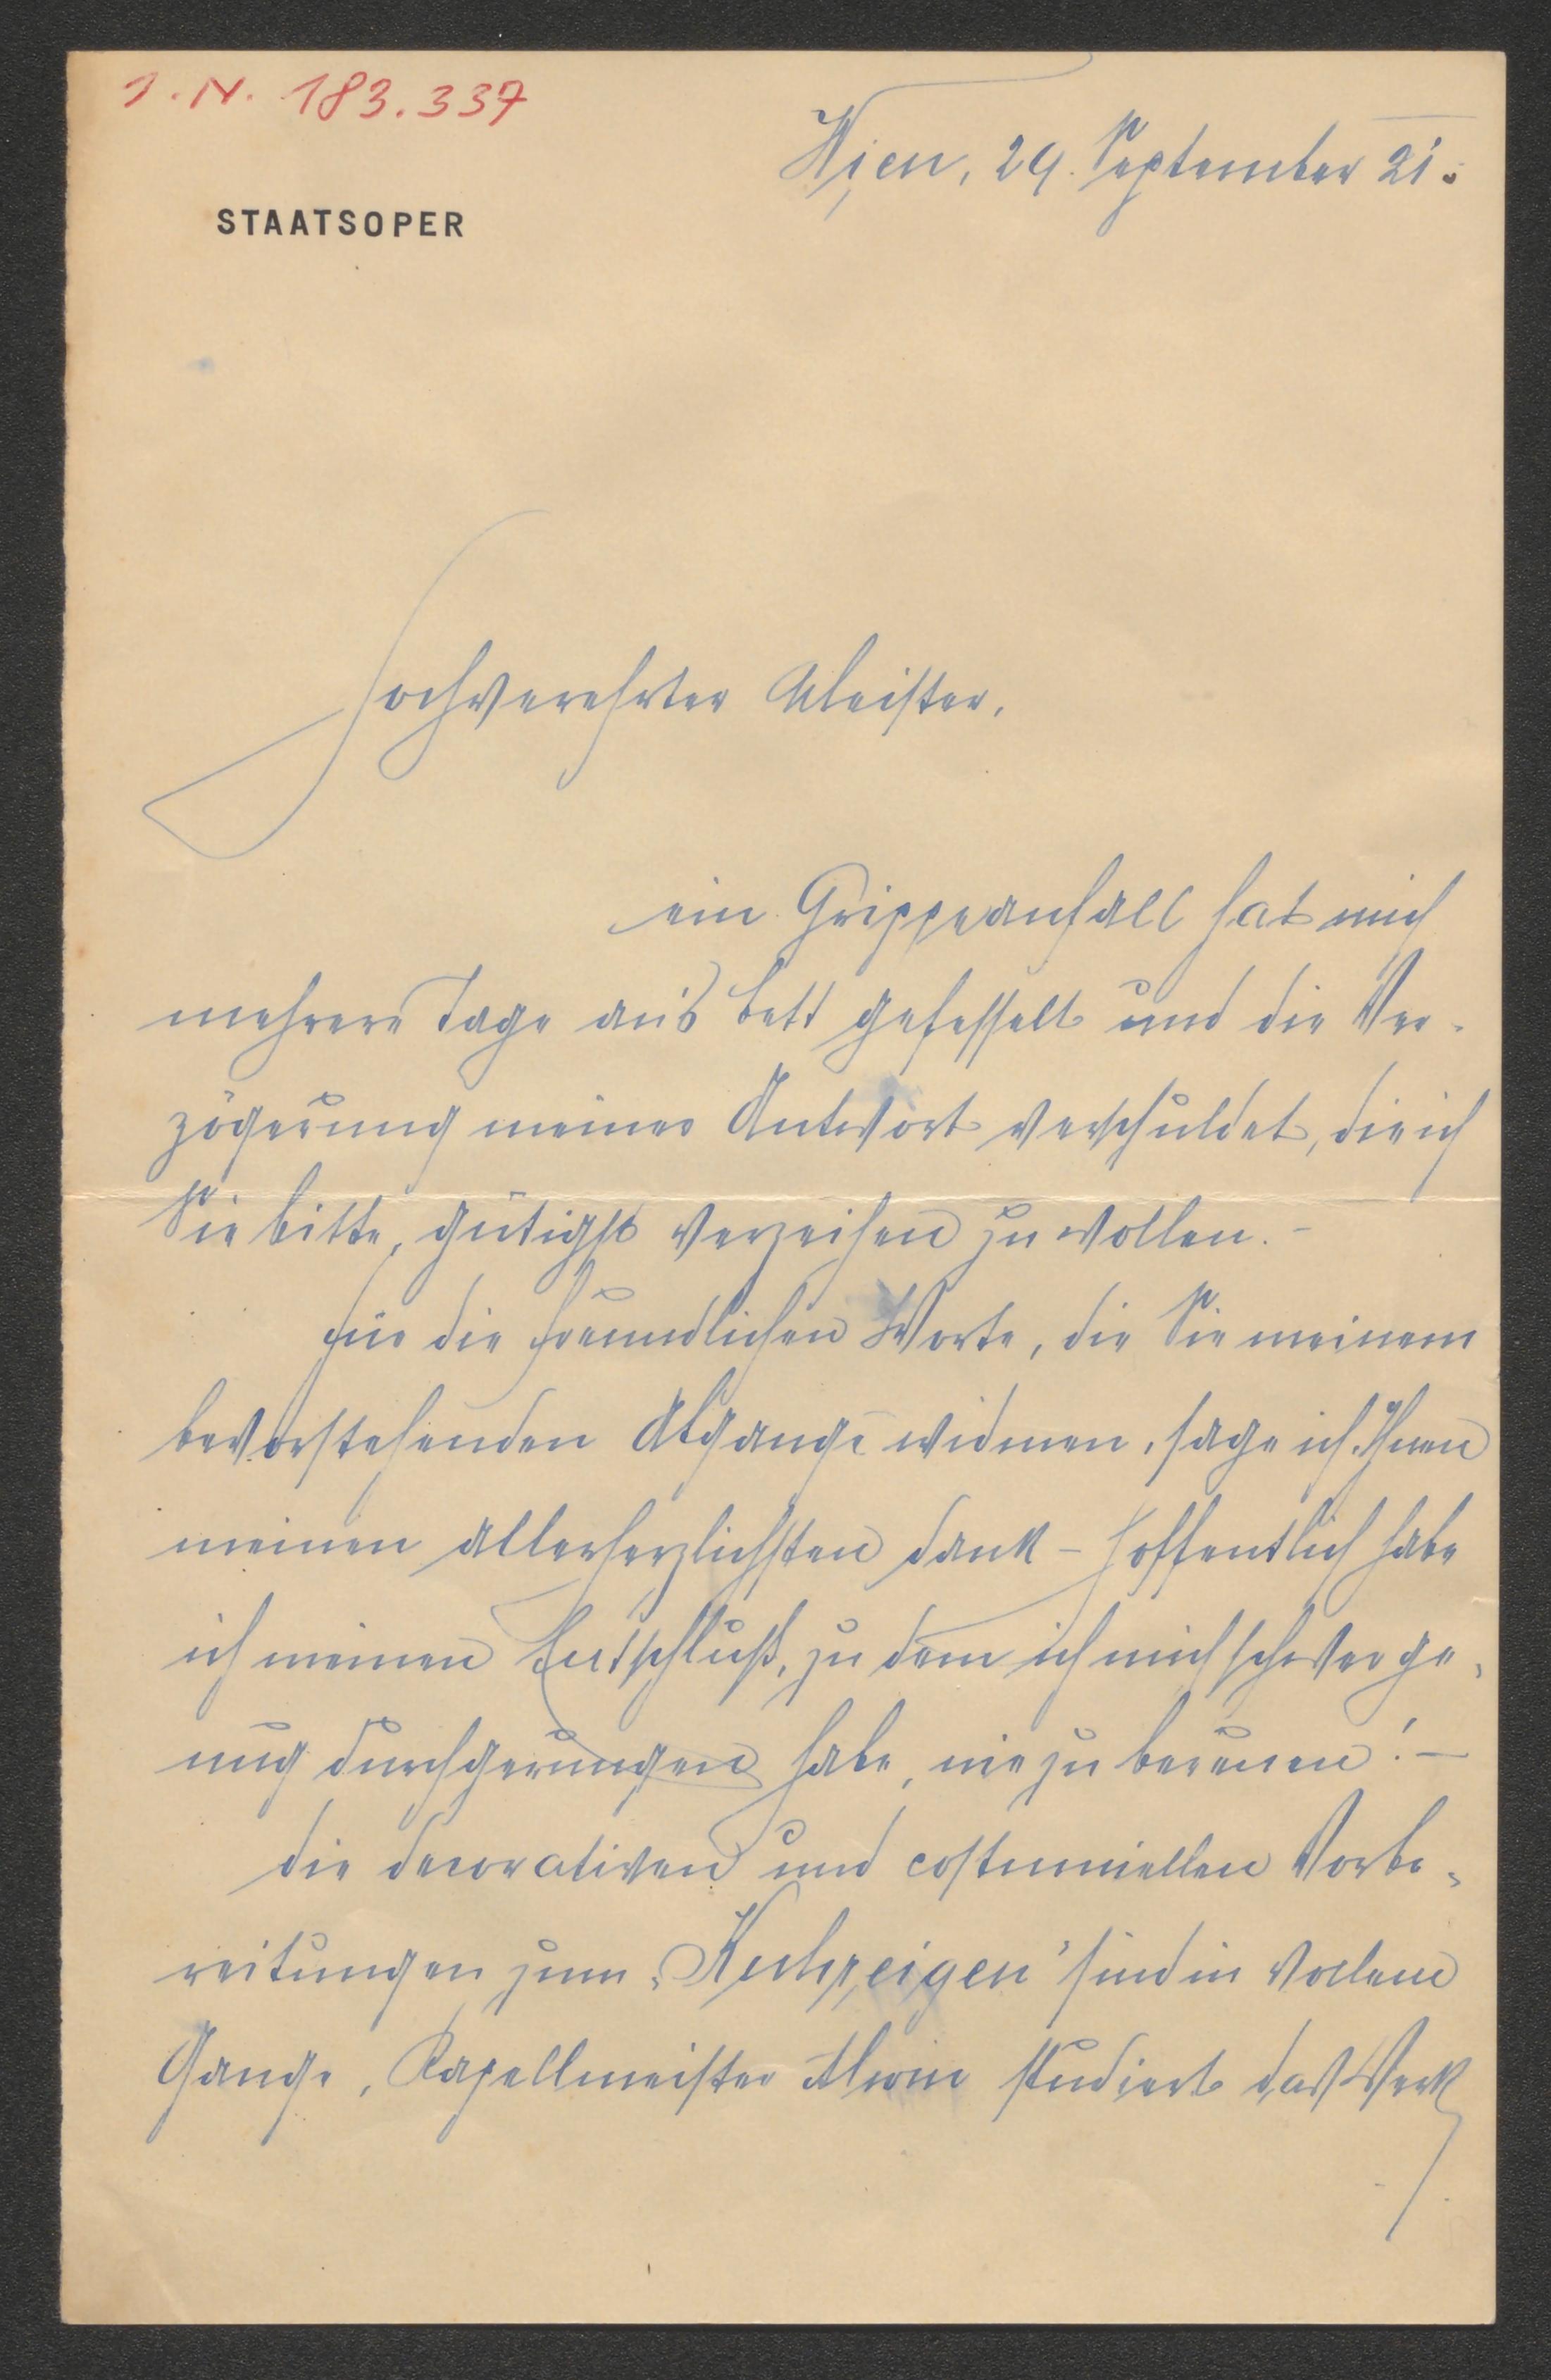 I. N. 183.337
Wien, 29. September 21.
STAATSOPER
Hochverehrter Meister,
ein Grippeanfall hat mich
mehrere Tage an's Bett gefesselt und die Ver-
zögerung meiner Antwort verschuldet, die ich
Sie bitte, gütigst verzeihen zu wollen. –
Für die freundlichen Worte, die Sie meinem
bevorstehenden Abgange widmen, sage ich Ihnen
meinen allerherzlichsten Dank – hoffentlich habe
ich meinen Entschluß, zu dem ich mich schwer ge-
nug durchgerungen habe, nie zu bereuen! –
Die decorativen und costumiellen Vorbe-
reitungen zum „Kuhreigen" sind in vollem
Gange, Kapellmeister Alwin studiert das Werk